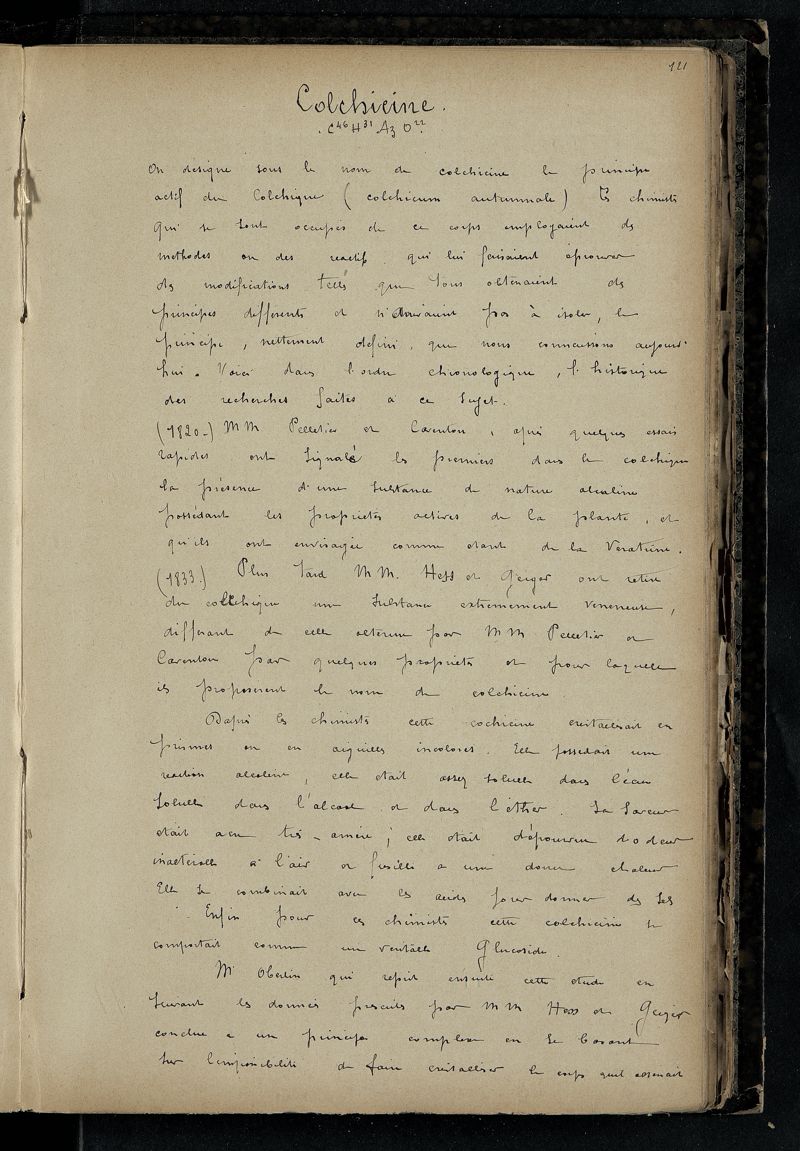 121
Colchicine.
C⁴⁶H³¹AzO²²
On designe sous le nom de colchicine le principe
actif du Colchique (colchicum autumnale) Les chimistes
qui se sont occupés de ce corps employaient des
methodes ou des reactifs qui lui faisaient éprouver
des modifications telles que tous obtenaient des
principes differents et n'arrivaient pas à isoler, le
principe, nettement defini, que nous connaissons aujourd'
hui. Voici dans l'ordre chronologique, l'historique
des recherches faites à ce sujet.
(1820.) MM Pelletier et Caventou, après quelques essais
rapides ont signalé les premiers dans le colchique
la présence d'une substance de nature alcaline
possedant les proprietés actives de la plante, et
qu'ils ont envisagée comme etant de la Veratrine.
(1833.) Plus tard MM. Hess et Geiger ont retiré
du colchique une substance extremement veneneuse,
differant de celle obtenue par MM Pelletier et
Caventou par quelques proprietés et pour laquelle
ils proposerent le nom de colchicine.
Dapres les chimistes cette cochicine cristallisait en
prismes ou en aiguilles incolores. Elle possedait une
reaction alcaline, elle etait assez soluble dans l'eau
soluble dans l'alcool et dans l'ether. Sa saveur
etait acre tres-amère; elle etait dépourvue d'odeur
inalterable à l'air et fusible a une douce chaleur
Elle se combinait avec les acides pour donner des sels
Enfin pour ces chimistes cette colchicine se
comportait comme un veritable Glucoside.
Mr Oberlin qui reprit ensuite cette etude en
suivant les données prescrites par MM Hess et Geiger
conclue a un principe complexe en se basant
sur l'impossibilité de faire cristalliser le corps quil obtenait